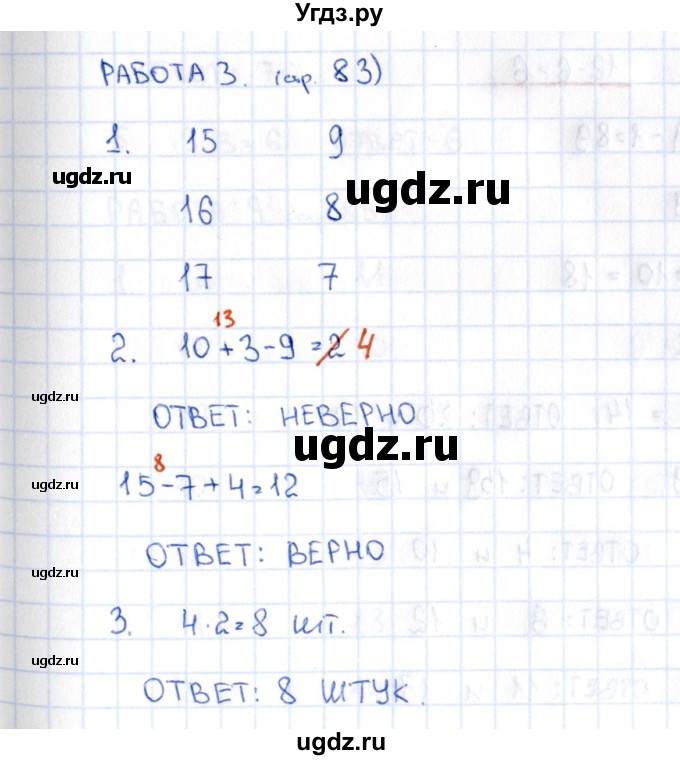 Угдз.ру
РАБОТА 3. (стр. 83)
1. 15 9
ugdz.ru
ugdz.ru
16 8
17 7
13
2. 10+3-9=2 4
ugdz.ru
ОТВЕТ: НЕВЕРНО
ugdz.ru
8
15-7+4=12
ugdz.ru
ОТВЕТ: ВЕРНО
ugdz.ru
3. 4·2=8 шт.
ugdz.ru
ОТВЕТ: 8 ШТУК.
ugdz.ru